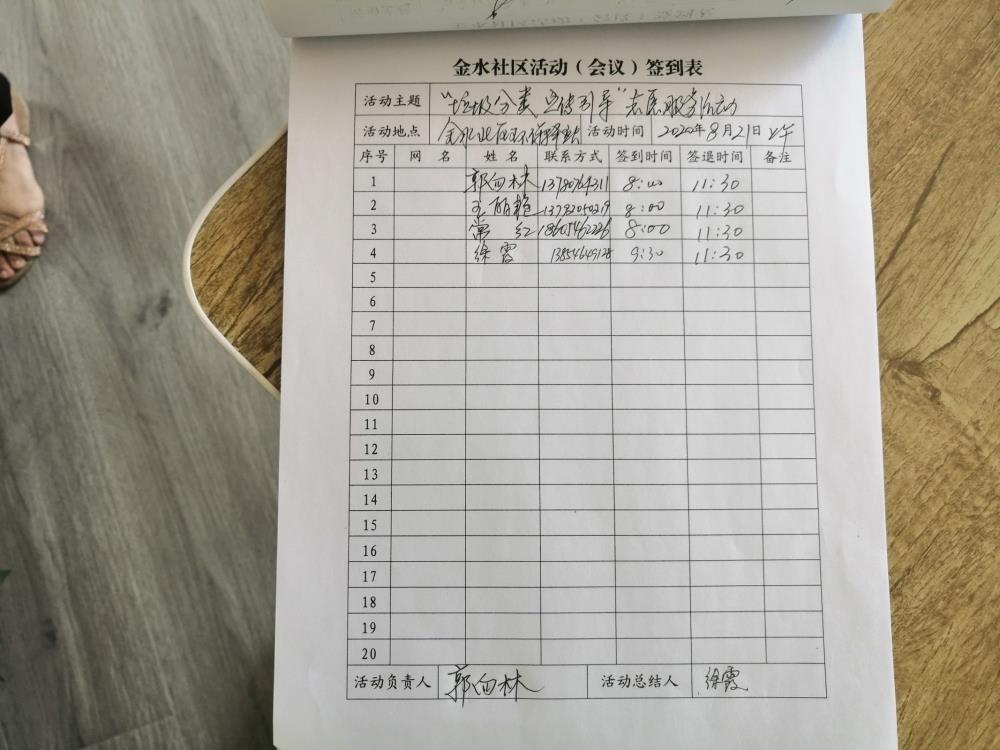 金水社区活动（会议）签到表
活动主题 "垃圾分类 宣传引导"志愿服务活动
活动地点 金水社区 活动时间 2020年8月21日 上午
序号 网 名 姓 名 联系方式 签到时间 签退时间 备注
1 郭向林 8:00 11:30
2 王丽艳 8:00 11:30
3 常 红 8:00 11:30
4 徐霞 9:30 11:30
5
6
7
8
9
10
11
12
13
14
15
16
17
18
19
20
活动负责人 郭向林 活动总结人 徐霞